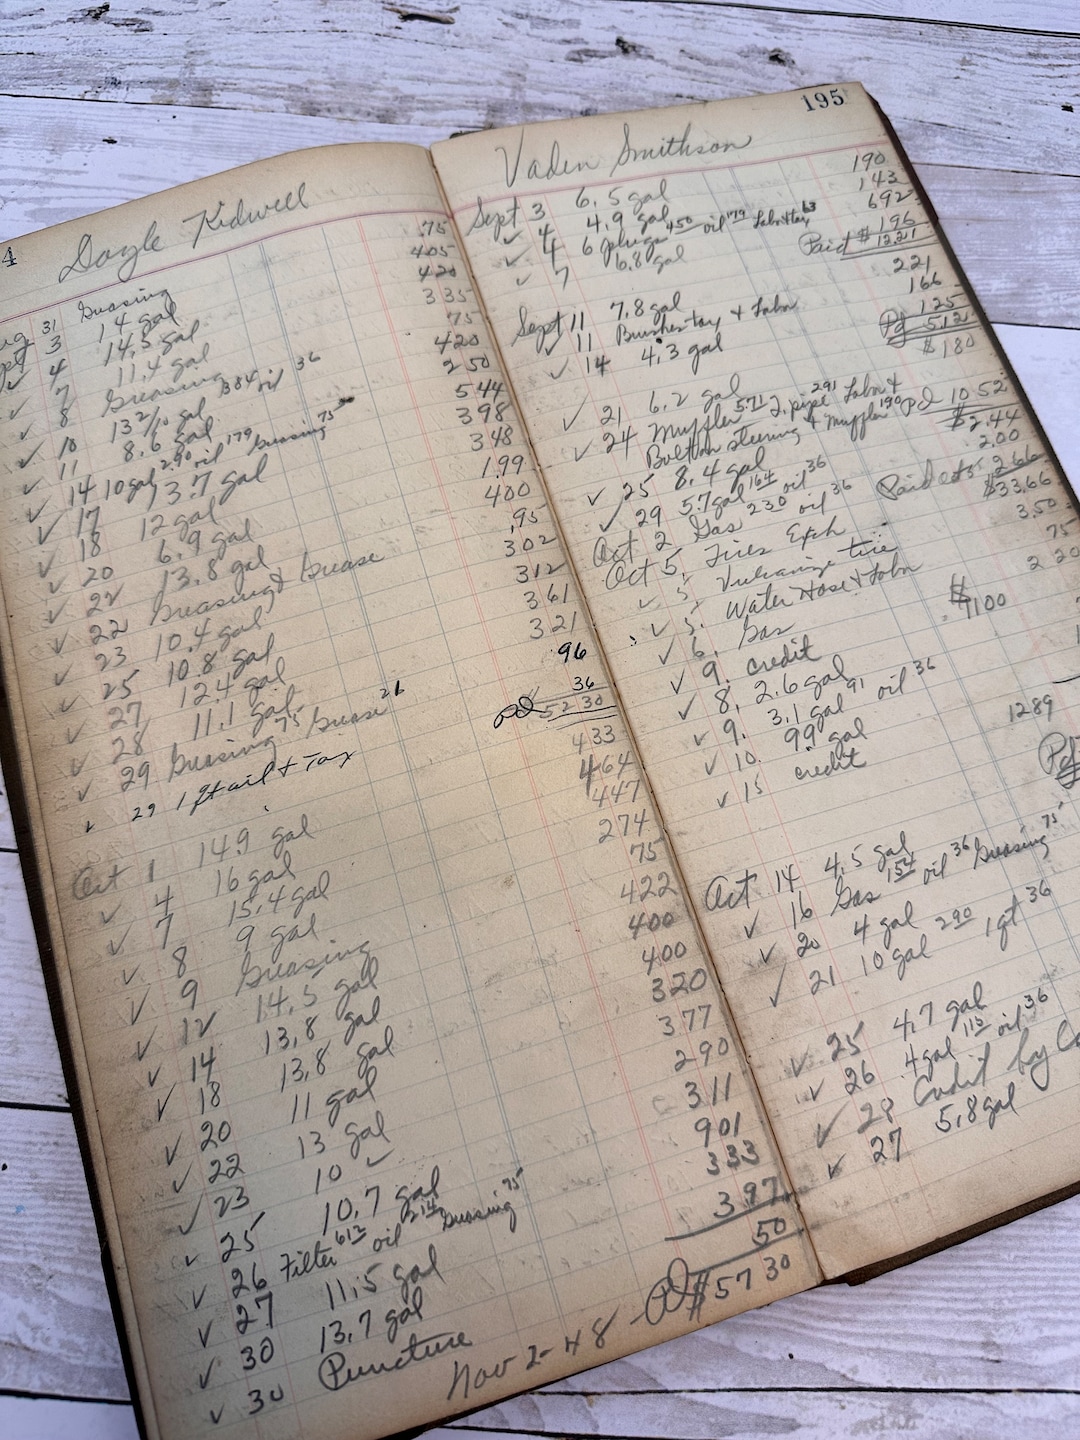 4
Doyle Kidwell
Aug 31 Greasing 75
Sept 3 14 gal 405
✓ 4 14.5 gal 420
✓ 7 11.4 gal 335
✓ 8 Greasing 75
✓ 10 13 2/10 gal oil 36 420
✓ 11 8.6 gal 250
✓ 14 10 gal 290 oil 179 Greasing 75 544
✓ 17 13.7 gal 398
✓ 18 12 gal 348
✓ 20 6.9 gal 1.99
✓ 22 13.8 gal 400
✓ 22 Greasing & Grease .95
✓ 23 10.4 gal 302
✓ 25 10.8 gal 312
✓ 27 12.4 gal 361
✓ 28 11.1 gal 321
✓ 29 Greasing 75 Grease 21 96
✓ 29 1 qt oil + Tax 36
Pd 52 30
Oct 1 14.9 gal 433
✓ 4 16 gal 464
✓ 7 15.4 gal 447
✓ 8 9 gal 274
✓ 9 Greasing 75
✓ 12 14.5 gal 422
✓ 14 13.8 gal 400
✓ 18 13.8 gal 400
✓ 20 11 gal 320
✓ 22 13 gal 377
✓ 23 10 ✓ 290
✓ 25 10.7 gal 311
✓ 26 Filter 612 oil 214 Greasing 75 901
✓ 27 11.5 gal 333
✓ 30 13.7 gal 397
✓ 30 Puncture 50
Nov 2-48 - Pd $57 30
195
Vaden Smithson
Sept 3 6.5 gal 190
✓ 4 4.9 gal 143
✓ 4 6 plugs 450 oil 179 Labor tax 63 692
✓ 7 6.8 gal 196
Paid $ 1221
Sept 11 7.8 gal 221
✓ 11 Brushes tax + Labor 166
✓ 14 4.3 gal 125
Pd 512
✓ 21 6.2 gal $ 180
✓ 24 Muffler 571 2 pipe 291 Labor &
Bolt on steering + Muffler 190 Pd 10 52
✓ 25 8.4 gal $2.44
✓ 29 5.7 gal 164 oil 36 2.00
Oct 2 Gas 230 oil 36 Paid Oct 5 266
Oct 5, Tires Exch $33.66
✓ 5, Vulcanize tire 3.50
✓ 5, Water Hose & Labor 75
✓ 6, Gas 2 20
✓ 9. credit $ 7100
✓ 8, 2.6 gal
✓ 9. 3.1 gal 91 oil 36
✓ 10 9.9 gal
✓ 15 credit 1289
Pd
Oct 14 4.5 gal
✓ 16 Gas 154 oil 36 Greasing 75
✓ 20 4 gal
✓ 21 10 gal 290 1 qt 36
✓ 25 4.7 gal
✓ 26 4 gal 115 oil 36
✓ 28 Credit by
✓ 27 5.8 gal